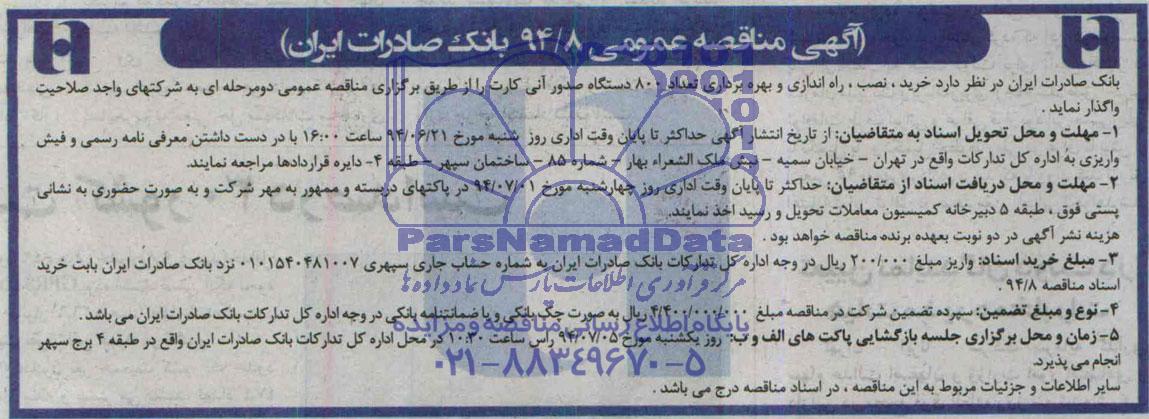 (آگهی مناقصه عمومی ۹۴/۸ بانک صادرات ایران)
بانک صادرات ایران در نظر دارد خرید ، نصب ، راه اندازی و بهره برداری تعداد ۸۰۰ دستگاه صدور آنی کارت را از طریق برگزاری مناقصه عمومی دومرحله ای به شرکتهای واجد صلاحیت
واگذار نماید .
۱- مهلت و محل تحویل اسناد به متقاضیان: از تاریخ انتشار آگهی حداکثر تا پایان وقت اداری روز شنبه مورخ ۹۴/۰۶/۲۱ ساعت ۱۶:۰۰ با در دست داشتن معرفی نامه رسمی و فیش
واریزی به اداره کل تدارکات واقع در تهران – خیابان سمیه – نبش ملک الشعراء بهار – شماره ۸۵ – ساختمان سپهر – طبقه ۴- دایره قراردادها مراجعه نمایند.
۲- مهلت و محل دریافت اسناد از متقاضیان: حداکثر تا پایان وقت اداری روز چهارشنبه مورخ ۹۴/۰۷/۰۱ در پاکتهای دربسته و ممهور به مهر شرکت و به صورت حضوری به نشانی
پستی فوق ، طبقه ۵ دبیرخانه کمیسیون معاملات تحویل و رسید اخذ نمایند.
هزینه نشر آگهی در دو نوبت بعهده برنده مناقصه خواهد بود .
ParsNamadData
۳- مبلغ خرید اسناد: واریز مبلغ ۲۰۰/۰۰۰ ریال در وجه اداره کل تدارکات بانک صادرات ایران به شماره حساب جاری سپهری ۰۱۰۱۵۴۰۴۸۱۰۰۷ نزد بانک صادرات ایران بابت خرید
اسناد مناقصه ۹۴/۸ .
مرکز فرآوری اطلاعات پارس نماد داده ها
۴- نوع و مبلغ تضمین: سپرده تضمین شرکت در مناقصه مبلغ ۴/۴۰۰/۰۰۰/۰۰۰ ریال به صورت چک بانکی و یا ضمانتنامه بانکی در وجه اداره کل تدارکات بانک صادرات ایران می باشد .
پایگاه اطلاع رسانی مناقصه و مزایده
۵- زمان و محل برگزاری جلسه بازگشایی پاکت های الف و ب: روز یکشنبه مورخ ۹۴/۰۷/۰۵ راس ساعت ۱۰:۳۰ در محل اداره کل تدارکات بانک صادرات ایران واقع در طبقه ۴ برج سپهر
انجام می پذیرد.
۰۲۱-۸۸۳۴۹۶۷۰-۵
سایر اطلاعات و جزئیات مربوط به این مناقصه ، در اسناد مناقصه درج می باشد .